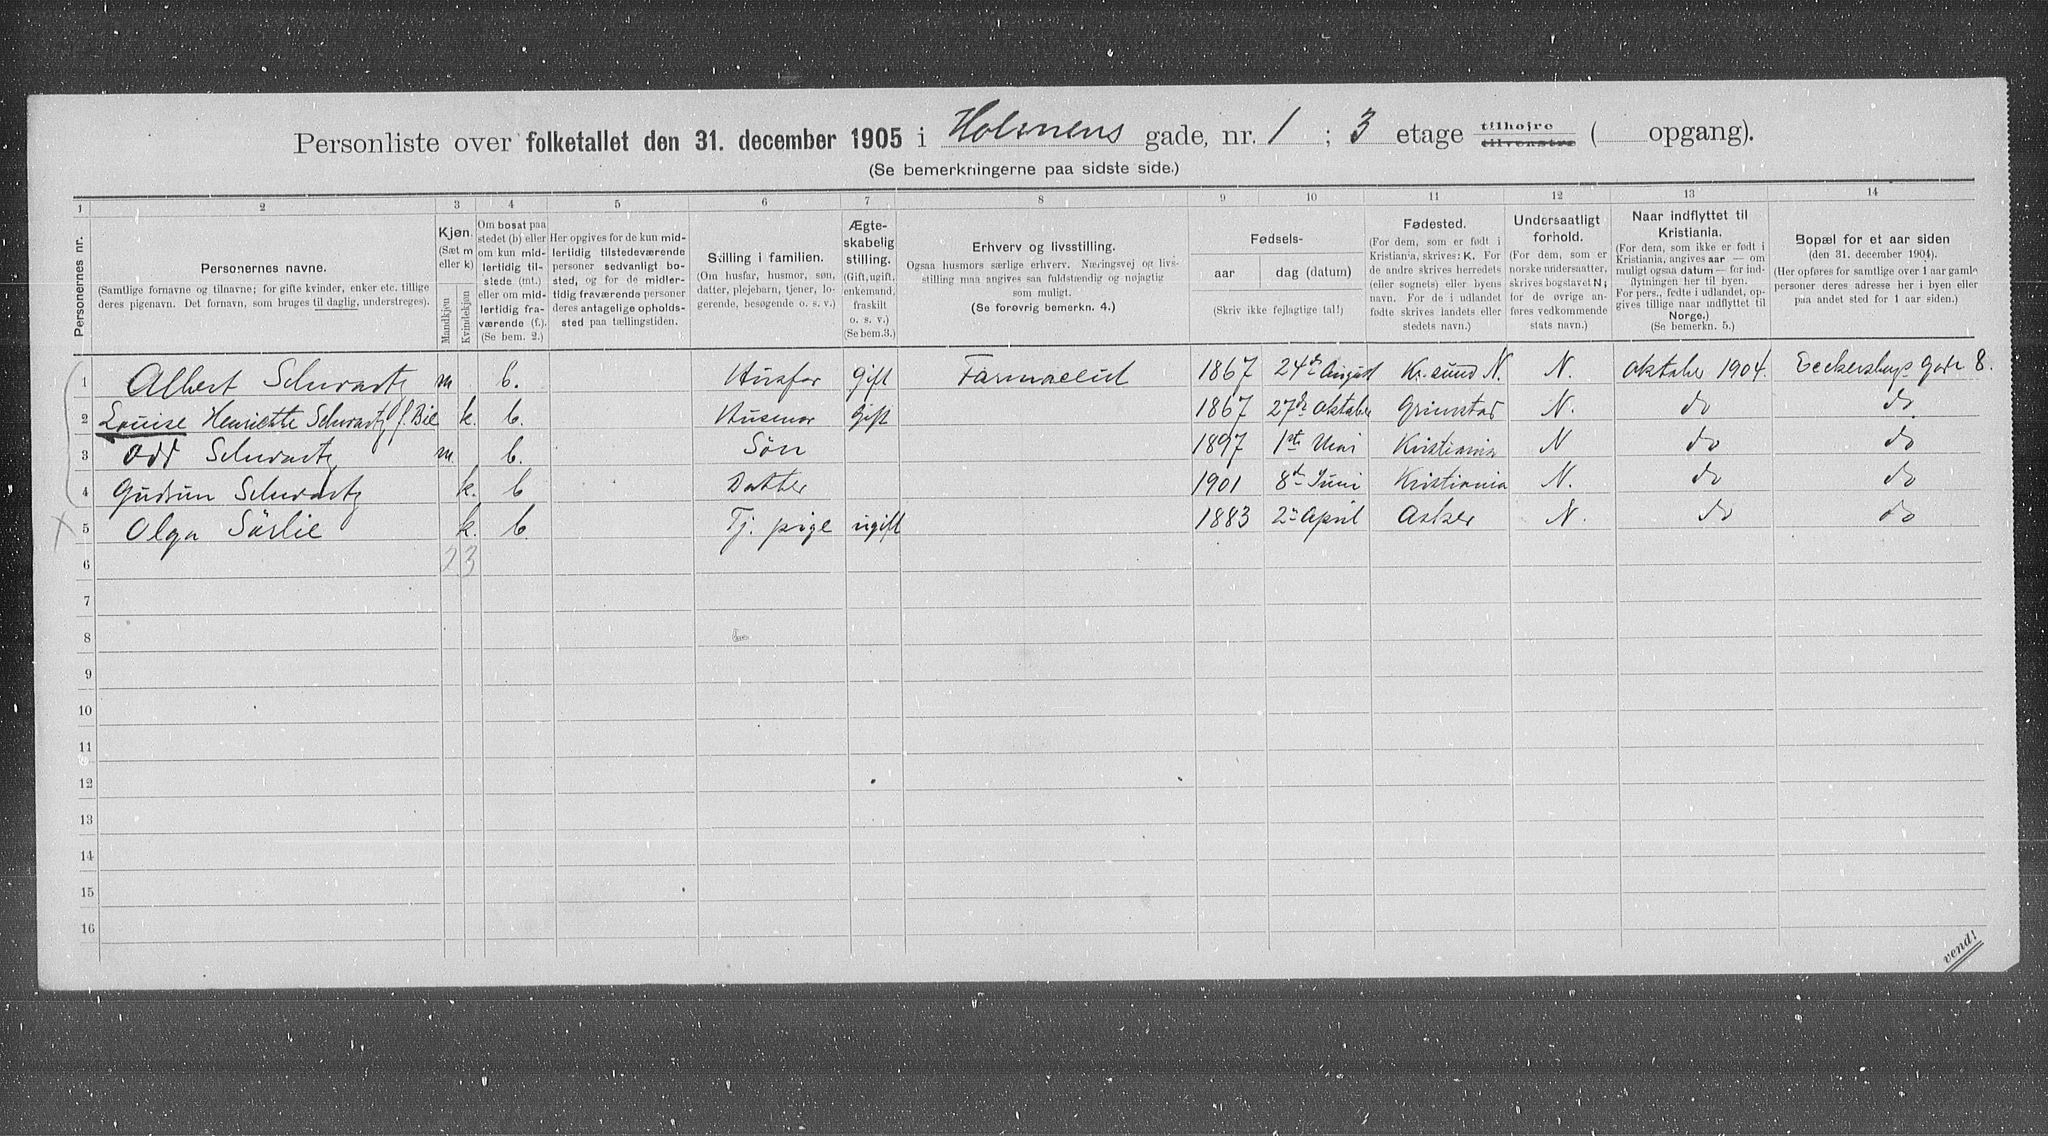 Personliste over folketallet den 31. december 1905 i Holmens gade, nr. 1 ; 3 etage tilhøjre tilvenstre ( opgang).
(Se bemerkningerne paa sidste side.)
1 2 3 4 5 6 7 8 9 10 11 12 13 14
Personernes nr.
Personernes navne.
(Samtlige fornavne og tilnavne; for gifte kvinder, enker etc. tillige
deres pigenavn. Det fornavn, som bruges til daglig, understreges).
Kjøn.
(Sæt m
eller k)
Mandkjøn
Kvindekjøn
Om bosat paa
stedet (b) eller
om kun mid-
lertidig til-
stede (mt.)
eller om mid-
lertidig fra-
værende (f.).
(Se bem. 2.)
Her opgives for de kun mid-
lertidig tilstedeværende
personer sedvanligt bo-
sted, og for de midler-
tidig fraværende personer
deres antagelige opholds-
sted paa tællingstiden.
Stilling i familien.
(Om husfar, husmor, søn,
datter, plejebarn, tjener, lo-
gerende, besøgende o. s. v.)
Ægte-
skabelig
stilling.
(Gift, ugift,
enkemand,
fraskilt
o. s. v.)
(Se bem. 3.)
Erhverv og livsstilling.
Ogsaa husmors særlige erhverv. Næringsvej og livs-
stilling maa angives saa fuldstændig og nøjagtig
som muligt.
(Se forøvrig bemerkn. 4.)
Fødsels-
aar dag (datum)
(Skriv ikke fejlagtige tal!)
Fødested.
(For dem, som er født i
Kristiania, skrives: K. For
de andre skrives herredets
(eller sognets) eller byens
navn. For de i udlandet
fødte skrives landets eller
stedets navn.)
Undersaatligt
forhold.
(For dem, som er
norske undersaatter,
skrives bogstavet N;
for de øvrige an-
føres vedkommende
stats navn.)
Naar indflyttet til
Kristiania.
(For dem, som ikke er født i
Kristiania, angives aar — om
muligt ogsaa datum — for ind-
flytningen her til byen.
For pers., fødte i udlandet, op-
gives tillige naar indflyttet til
Norge.)
(Se bemerkn. 5.)
Bopæl for et aar siden
(den 31. december 1904).
(Her opføres for samtlige over 1 aar gamle
personer deres adresse her i byen eller
paa andet sted for 1 aar siden.)
1 Albert Schwartz m b. Husfar Gift Farmaceut 1867 24de August Kr. sund N. N. Oktober 1904. Eckersbergs Gade 8.
2 Louise Henriette Schwartz f. Bie k. b. Husmor Gift 1867 27de Oktober Grimstad N. do do
3 Odd Schwartz m b. Søn 1897 1ste Mai Kristiania N do do
4 Gudrun Schwartz k. b Datter 1901 8de Juni Kristiania N. do do
5 Olga Sörlie k. b. Tj. pige ugift 1883 2den April Asker N. do do
6 2 3
7
8
9
10
11
12
13
14
15
16
vend!